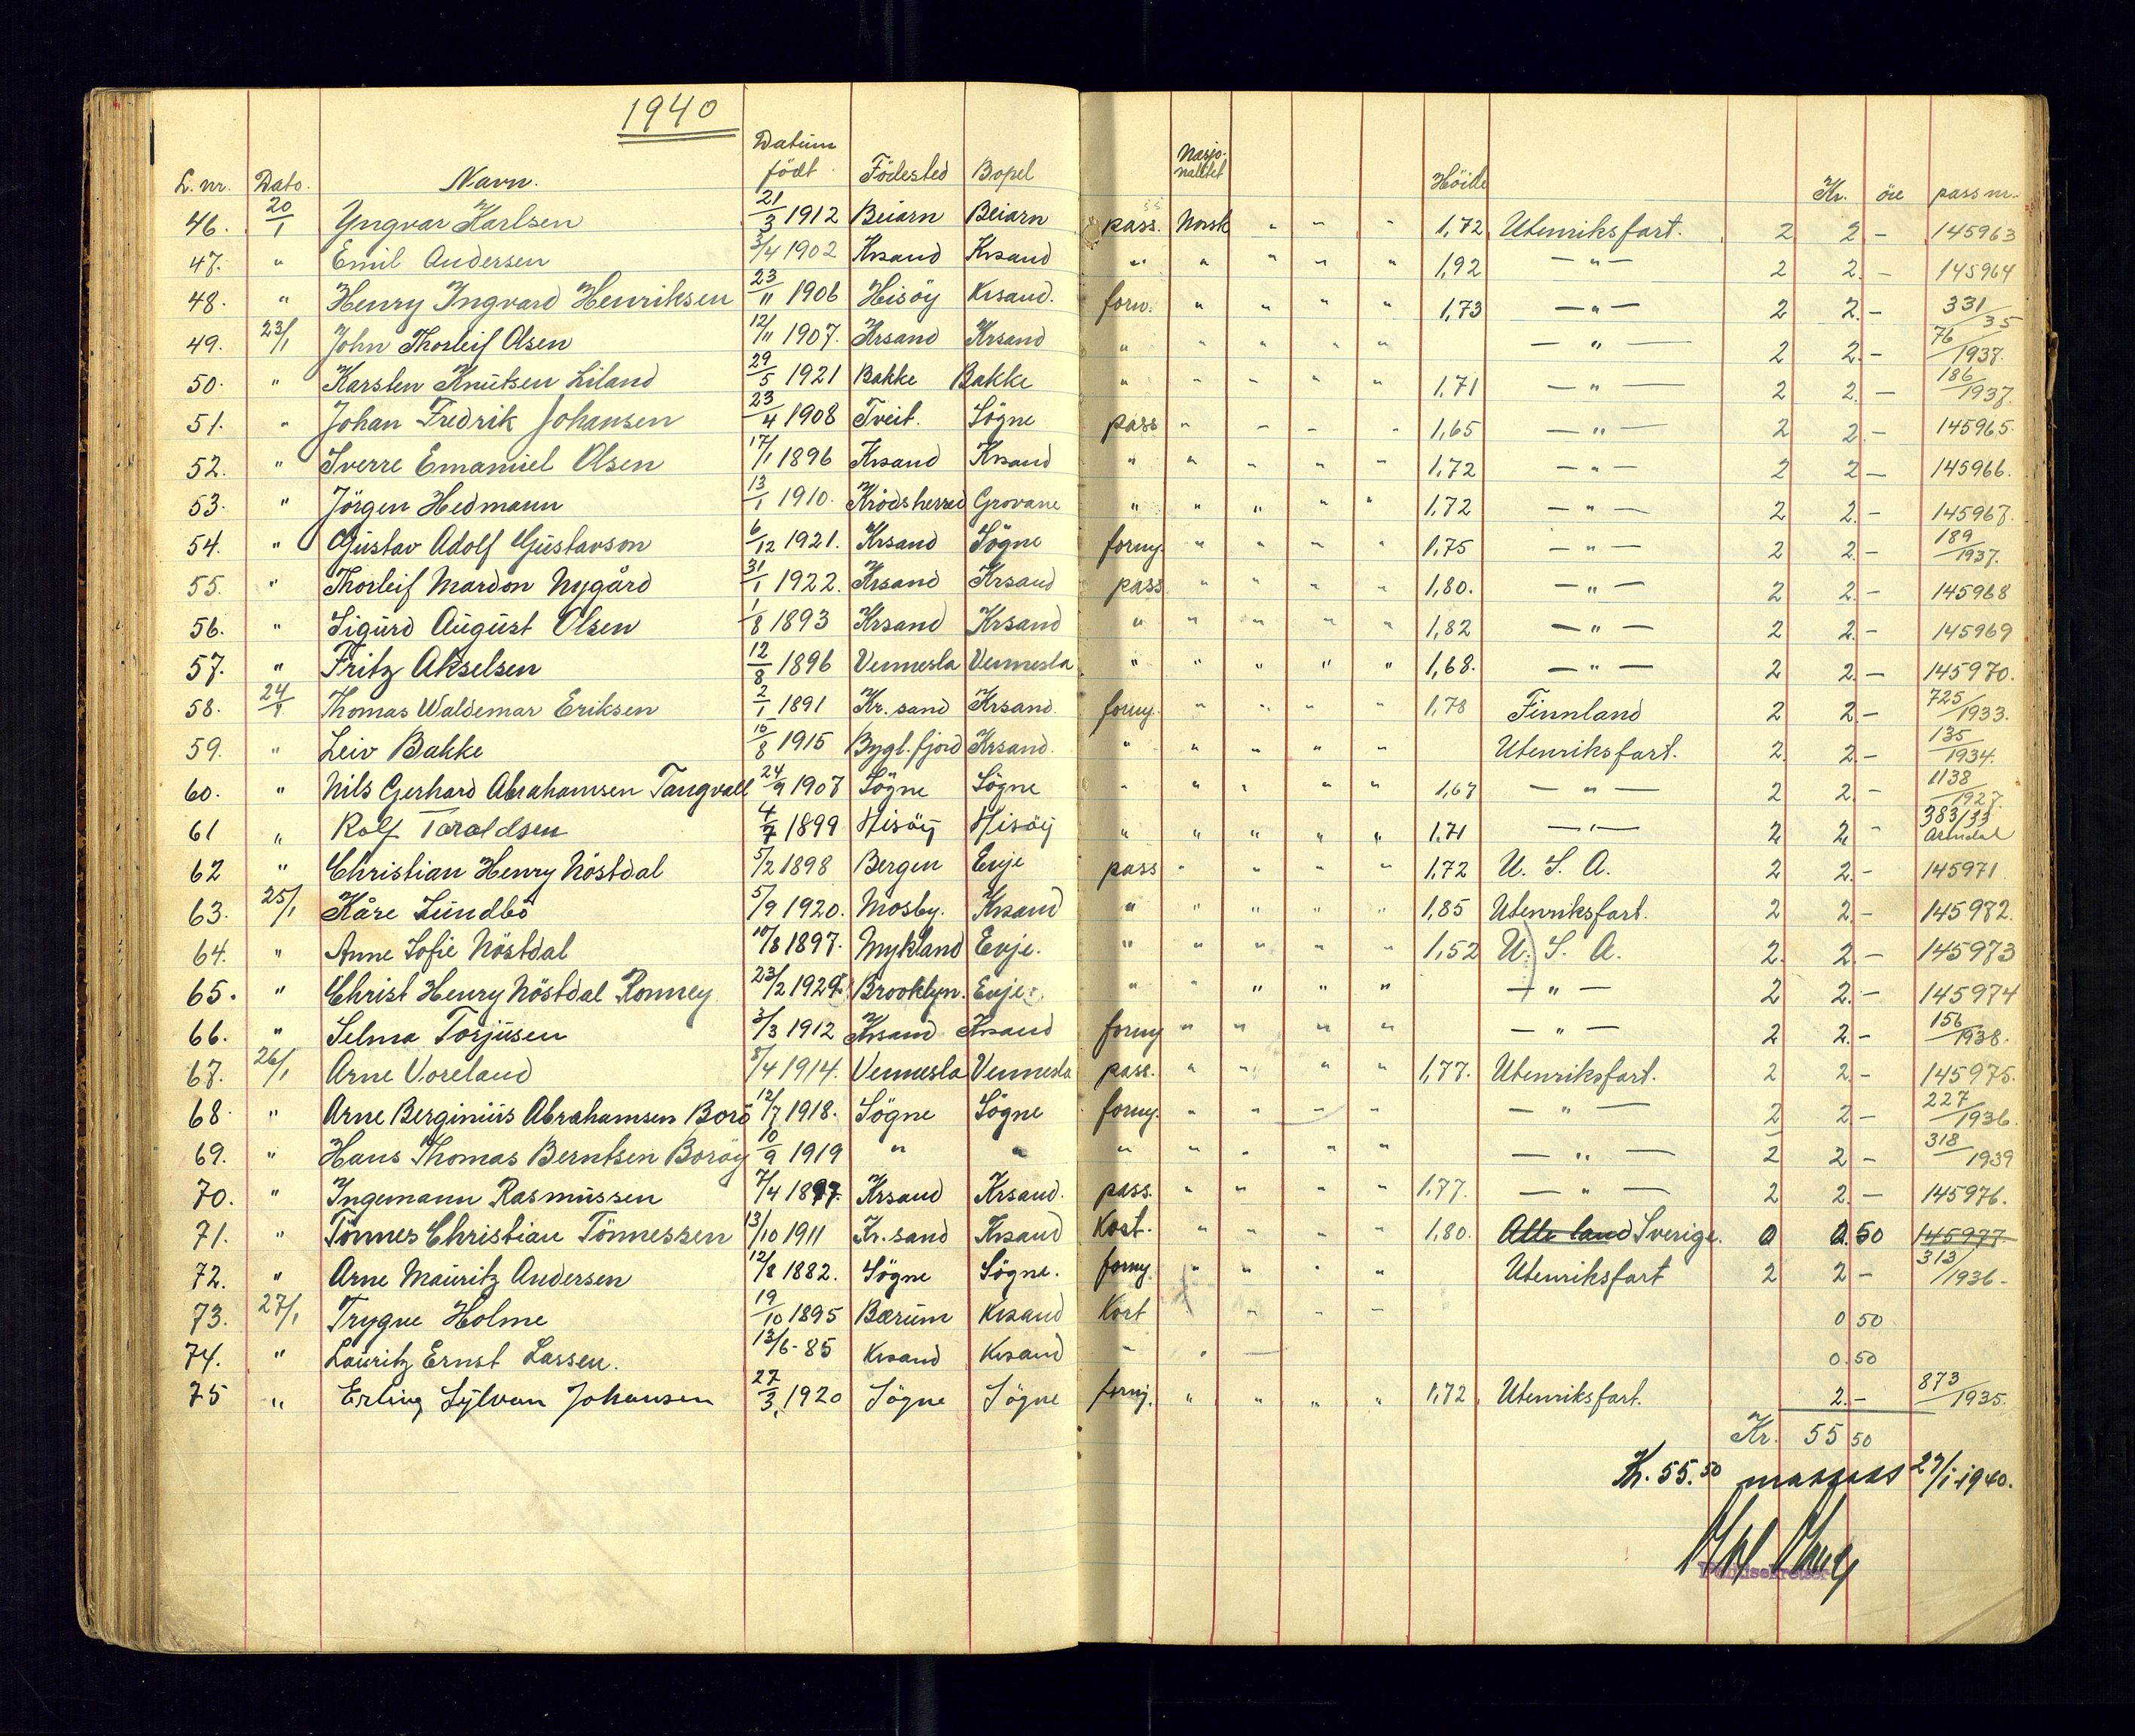 1940
L. nr. Dato. Navn. Datum födt Födested Bopel Nasjonalitet Höide Kr. öre pass nr.
46. 20/1 Yngvar Karlsen 21/3 1912 Beiarn Beiarn pass. Norsk " " " 1,72 Utenriksfart. 2 2 - 145963
47. " Emil Andersen 3/4 1902 Krsand Krsand " " " " " 1,92 - " - 2 2. - 145964
48. " Henry Ingvard Henriksen 23/11 1906 Hisöy Krsand. forn. " " " " 1,73 - " - 2 2. - 331/35
49. 23/1 John Thorleif Olsen 12/11 1907. Krsand Krsand " " " " " - " - 2 2. - 76/1937.
50. " Karsten Knutsen Liland 29/5 1921 Bakke Bakke " " " " " 1,71 - " - 2 2. - 186/1937.
51. " Johan Fredrik Johansen 23/4 1908 Tveit. Sögne pass " " " " 1,65 - " - 2 2 - 145965.
52. " Sverre Emanuel Olsen 17/1 1896 Krsand Krsand " " " " " 1,72 - " - 2 2 - 145966.
53. " Jörgen Hedmann 13/1 1910. Krödsherred Grovane " " " " " 1,72 - " - 2 2. - 145967.
54. " Gustav Adolf Gustavson 6/12 1921. Krsand Sögne forny. " " " " 1,75 - " - 2 2. - 189/1937.
55. " Thorleif Mardon Nygård 31/1 1922. Krsand Krsand pass " " " " 1,80. - " - 2 2. - 145968
56. " Sigurd August Olsen 1/8 1893 Krsand Krsand " " " " " 1,82 - " - 2 2. - 145969
57. " Fritz Akselsen 12/8 1896 Vennesla Vennesla " " " " " 1,68. - " - 2 2. - 145970.
58. 24/1 Thomas Waldemar Eriksen 2/1 1891 Kr.sand Krsand. forny. " " " " 1,78 Finnland 2 2 - 725/1933.
59. " Leiv Bakke 10/8 1915 Bygl.fjord Krsand. " " " " " Utenriksfart. 2. 2. - 135/1934.
60. " Nils Gerhard Abrahamsen Tangvall 24/9 1907 Sögne Sögne " " " " " 1,67 - " - 2 2. - 1138/1927.
61 " Rolf Taraldsen 4/7 1899 Hisöy Hisöy " " " " " 1.71 - " - 2 2 - 383/33 Arendal
62 " Christian Henry Nöstdal 5/2 1898 Bergen Evje pass " " " " 1,72 U. S. A. 2 2. - 145971
63. 25/1 Kåre Lundbö 5/9 1920. Mosby. Krsand " " " " " 1,85 Utenriksfart. 2 2. - 145972.
64. " Anne Sofie Nöstdal 10/8 1897. Mykland Evje. " " " " " 1,52 U. S. A. 2. 2. - 145973
65. " Christ Henry Nöstdal Ronney 23/2 1929. Brooklyn. Evje. " " " " " - " - 2 2. - 145974
66. " Selma Torjusen 3/3 1912 Krsand Krsand forny " " " " - " - 2 2. - 156/1938.
67. 26/1 Arne Voreland 8/4 1914. Vennesla Vennesla pass. " " " " 1,77. Utenriksfart. 2 2. - 145975.
68. " Arne Berginius Abrahamsen Borö 12/7 1918. Sögne Sögne forny. " " " " - " - 2 2. - 227/1936.
69. " Hans Thomas Berntsen Boröy 10/9 1919 " " " " " " " - " - 2 2 - 318/1939
70. " Ingemann Rasmussen 7/4 1897. Krsand Krsand. pass. " " " " 1,77. - " - 2 2. - 145976.
71. " Tönnes Christian Tönnessen 13/10 1911 Kr.sand Krsand Kost. " " " " 1,80. Alle land Sverige. 0 0.50 145977.
72. " Arne Mauritz Andersen 12/8 1882. Sögne Sögne. forny. " " " " Utenriksfart 2 2 - 313/1936-
73. 27/1 Trygve Holme 19/10 1895 Bærum Krsand Kort " " " 0 50
74. " Lauritz Ernst Lassen. 13/6-85 Krsand Krsand " " - 0.50
75 " Erling Sylvan Johansen 27/3 1920 Sögne Sögne forny. " " " " 1,72 Utenriksfart. 2.- 873/1935.
Kr. 55 50
Kr. 55.50 27/1-1940.